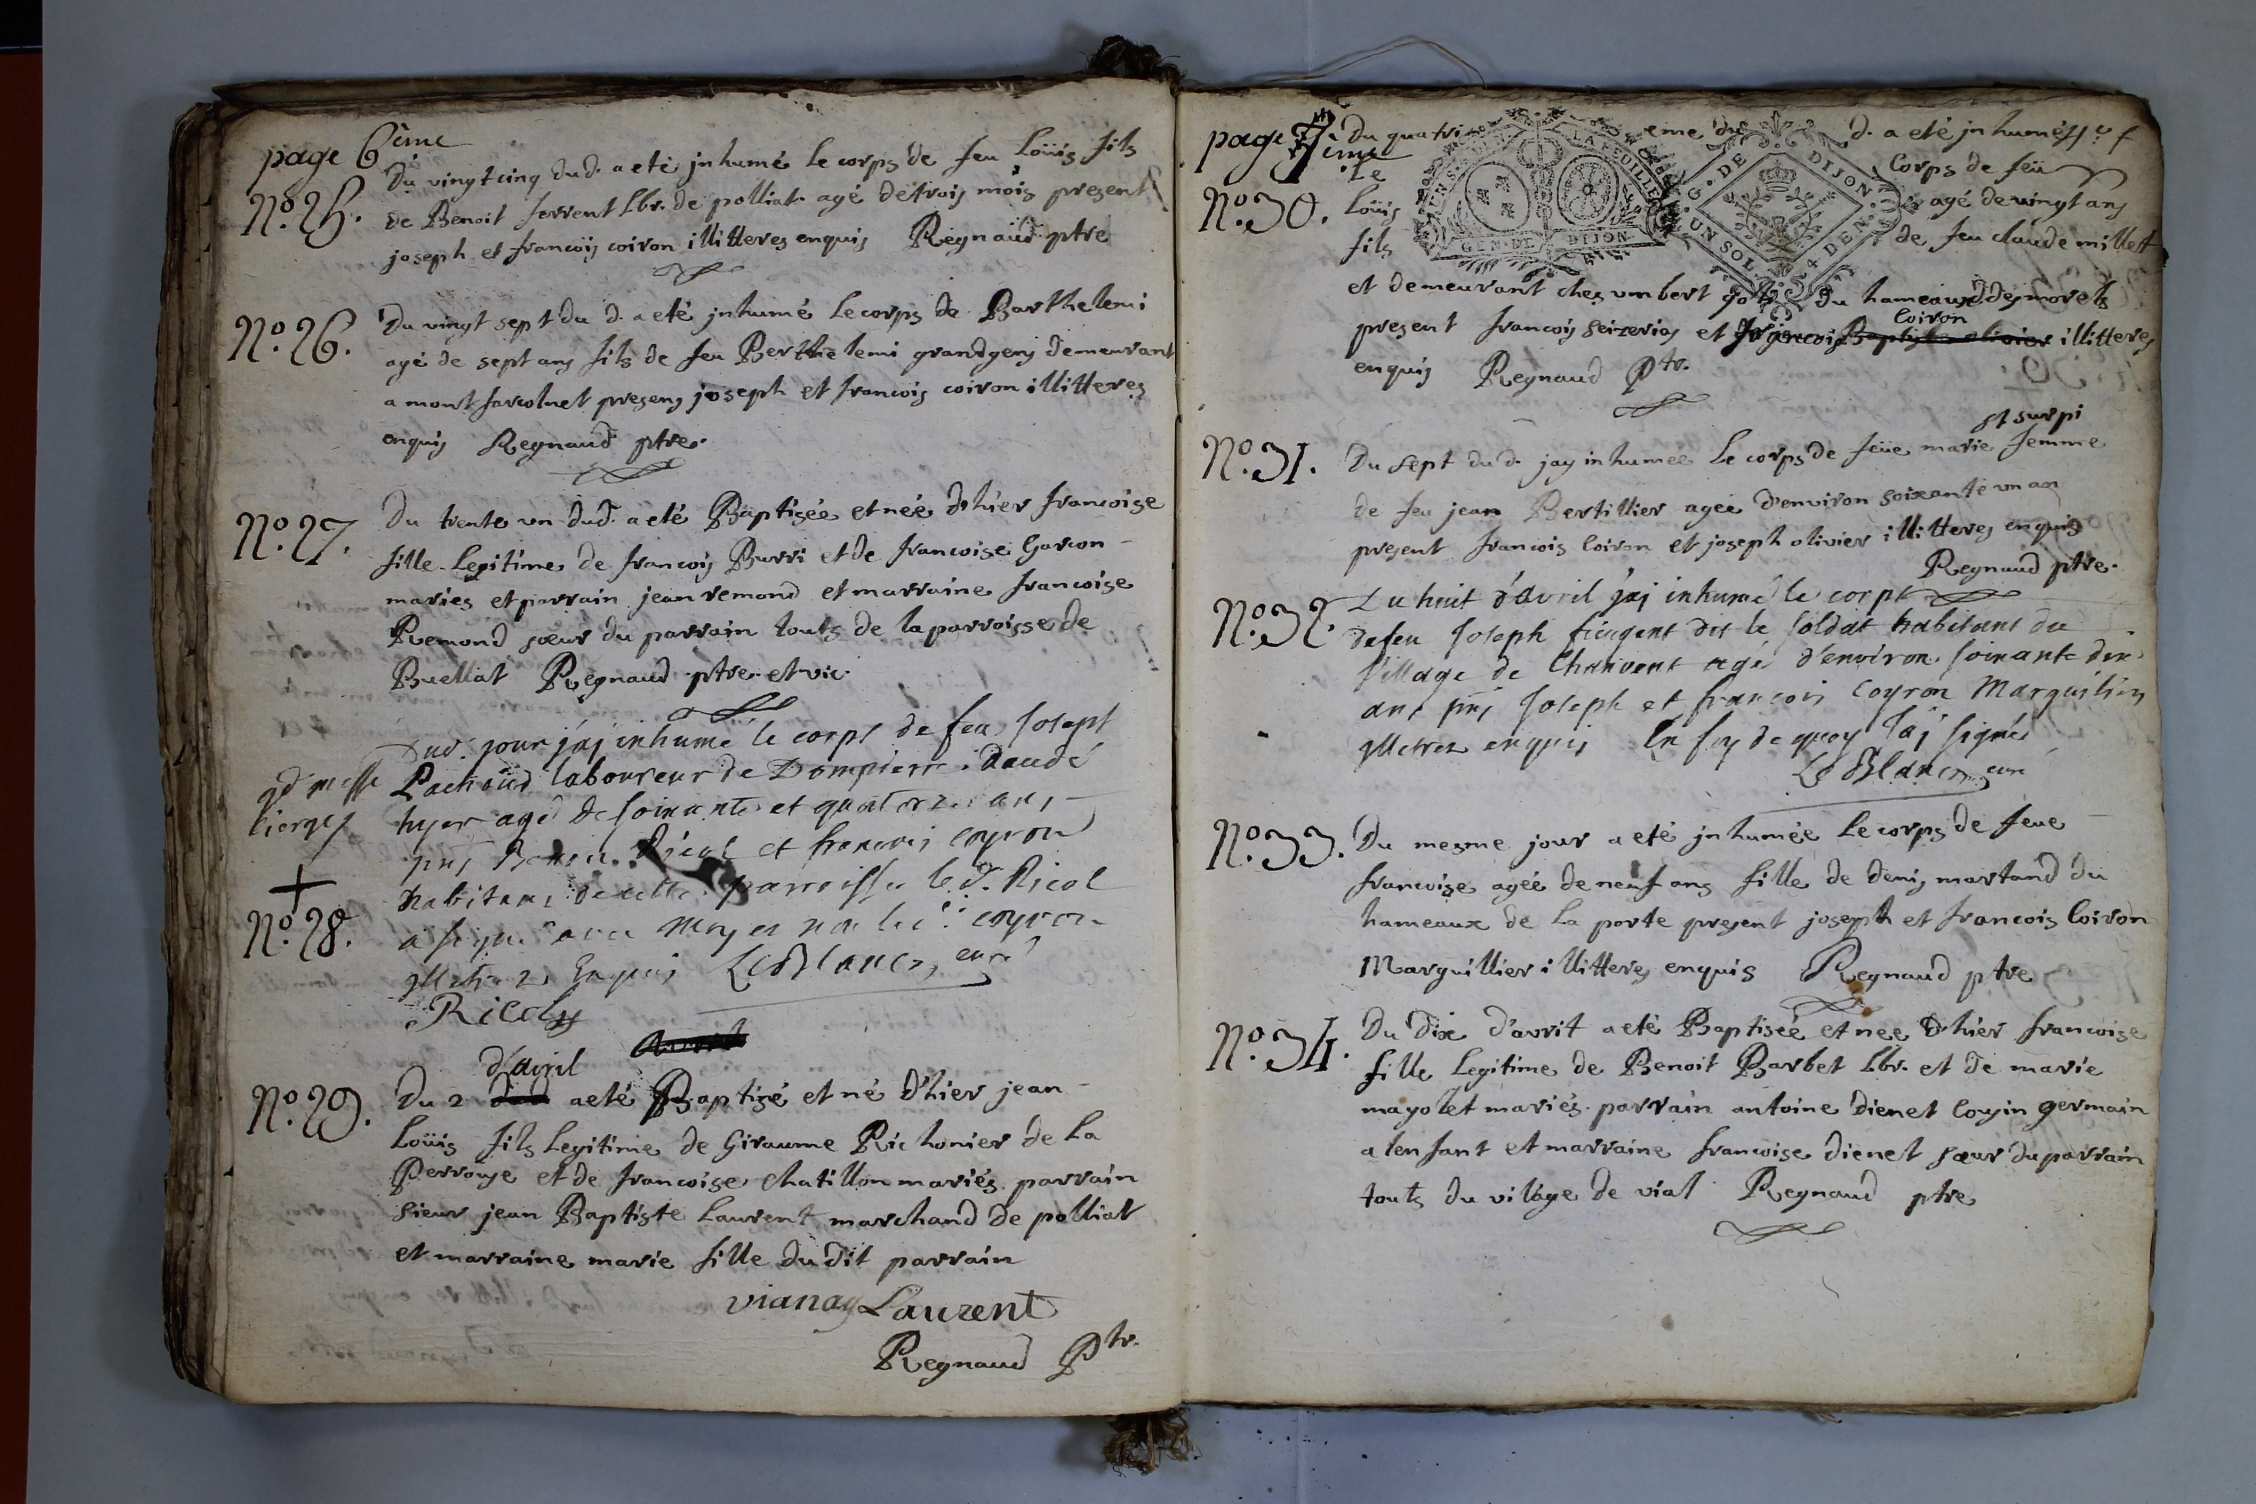 page 6ème
No. 25.
Du vingt cinq dud. a eté jnhumé le corps de feu Loüis fils
de Benoit ferrent Lbr. de polliat agé de trois mois present
joseph et francois coiron illitteres enquis Regnaud ptre
No. 26.
Du vingt sept du d. a eté jnhumé le corps de Barthelemi
agé de sept ans fils de feu Berthelemi grandgens demeurant
a mont farcolnet presens joseph et francois coiron illitteres
enquis Regnaud ptre.
No. 27.
Du trente un dud. a eté Baptisée et née d'hier francoise
fille Legitime de francois Burri et de francoise Garcon
maries et parrain jean remond et marraine francoise
Remond sœur du parrain touts de la parroisse de
Buellat Regnaud ptre. et vic.
gd messe
cierges
No. 28.
Dud. jour j'aj inhumé le corps de feu Joseph
Pachoud laboureur de Dompierre decedé
hyer agé de soixante et quatorze ans
pnts Ricol et francois coyron
habitans de cette parroisse le d. Ricol
a signé avec moy et non led. coyron
illetrez enquis LeBlanc, curé
Ricoly
d'avril
No. 29.
Du 2 a eté Baptisé et né d'hier jean
Loüis fils Legitime de Giraume Richonier de la
Perrouse et de francoise Chatillon mariés parrain
sieur jean Baptiste Laurent marchand de polliat
et marraine marie fille du dit parrain
vianay Laurent
Regnaud Ptr.
page 7ème
No. 30.
Du quatrieme du d. a eté jnhumé
Le corps de feü
Loüis agé de vingt ans
fils de feu claude millet
GEN. DE DIJON
G. DE DIJON
UN SOL 4 DEN
et demeurant ches umbert du hameaux des morels
present francois seizerias et francois coiron illitteres
enquis Regnaud Ptr.
st surpi
No. 31.
Du sept du d. jay inhumee le corps de feüe marie femme
de feu jean Bertillier agée d'environ soixante un an
present francois coiron et joseph olivier illitteres enquis
Regnaud ptre.
No. 32.
Du huit d'avril j'aj inhumé le corps
de feu Joseph dit le soldat habitant du
village de Chanvent agé d'environ soixante dix
ans pnts Joseph et francois Coyron Marguiliers
illetrez enquis En foy de quoy j'aj signé
LeBlanc, curé
No. 33.
Du mesme jour a eté jnhumée le corps de feue
francoise agée de neuf ans fille de denis martand du
hameaux de la porte present joseph et francois Coiron
Marguillier illitteres enquis Regnaud ptre
No. 34.
Du dix d'avrit a eté Baptisée et nee d'hier francoise
fille Legitime de Benoit Barbet Lbr. et de marie
mayolet mariés. parrain antoine dienet cousin germain
a lenfant et marraine francoise dienet sœur du parrain
touts du vilage de vial Regnaud ptre